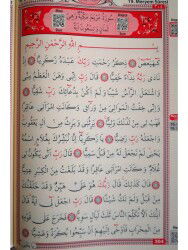 19. Meryem Sûresi
سورة مريم مكية وهي
ثمان وتسعون آية
بسم الله الرحمن الرحيم
كهيعص ذكر رحمت ربك عبده زكريا اذ
نادى ربه نداء خفيا قال رب اني وهن العظم مني
واشتعل الرأس شيبا ولم اكن بدعائك رب شقيا
واني خفت الموالي من ورائي وكانت امرأتي عاقرا
فهب لي من لدنك وليا يرثني ويرث من ال يعقوب
واجعله رب رضيا يا زكريا انا نبشرك بغلام اسمه
يحيى لم نجعل له من قبل سميا قال رب انى يكون لي
غلام وكانت امرأتي عاقرا وقد بلغت من الكبر
عتيا قال كذلك قال ربك هو علي هين وقد خلقتك
من قبل ولم تك شيئا قال رب اجعل لي اية قال
ايتك الا تكلم الناس ثلث ليال سويا فخرج على
304